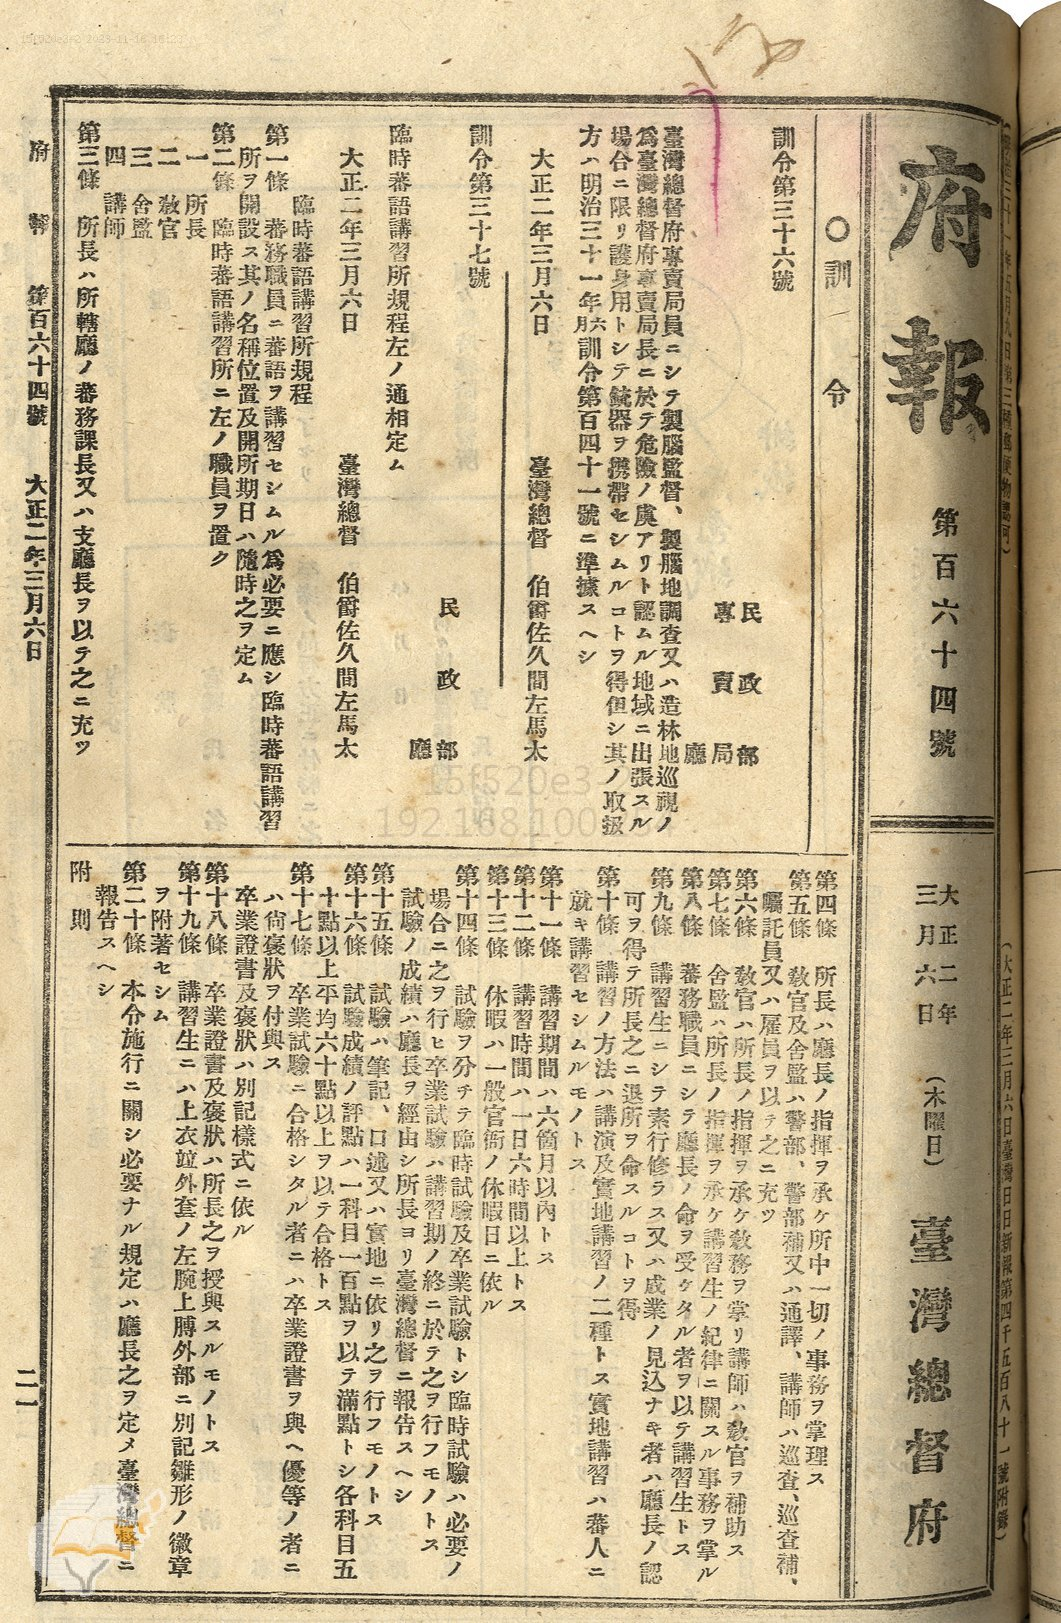 府報
第百六十四號
大正二年
三月六日
(木曜日)
臺灣總督府
(大正二年三月六日臺灣日日新報第四千五百八十一號附錄)
〇訓令
訓令第三十六號
民政部
專賣局
廳
臺灣總督府專賣局員ニシテ製腦監督、製腦地調査又ハ造林地巡視ノ
爲臺灣總督府專賣局長ニ於テ危險ノ虞アリト認ムル地域ニ出張スル
場合ニ限リ護身用トシテ銃器ヲ攜帶セシムルコトヲ得但シ其ノ取扱
方ハ明治三十一年六月訓令第百四十一號ニ準據スヘシ
大正二年三月六日
臺灣總督 伯爵佐久間左馬太
訓令第三十七號
民政部
廳
臨時蕃語講習所規程左ノ通相定ム
大正二年三月六日
臺灣總督 伯爵佐久間左馬太
臨時蕃語講習所規程
第一條 蕃務職員ニ蕃語ヲ講習セシムル爲必要ニ應シ臨時蕃語講習
所ヲ開設ス其ノ名稱位置及開所期日ハ隨時之ヲ定ム
第二條 臨時蕃語講習所ニ左ノ職員ヲ置ク
一 所長
二 敎官
三 舍監
四 講師
第三條 所長ハ所轄廳ノ蕃務課長又ハ支廳長ヲ以テ之ニ充ツ
第四條 所長ハ廳長ノ指揮ヲ承ケ所中一切ノ事務ヲ掌理ス
第五條 敎官及舍監ハ警部、警部補又ハ通譯、講師ハ巡查、巡查補、
囑託員又ハ雇員ヲ以テ之ニ充ツ
第六條 敎官ハ所長ノ指揮ヲ承ケ敎務ヲ掌リ講師ハ敎官ヲ補助ス
第七條 舍監ハ所長ノ指揮ヲ承ケ講習生ノ紀律ニ關スル事務ヲ掌ル
第八條 蕃務職員ニシテ廳長ノ命ヲ受ケタル者ヲ以テ講習生トス
第九條 講習生ニシテ素行修ラス又ハ成業ノ見込ナキ者ハ廳長ノ認
可ヲ得テ所長之ニ退所ヲ命スルコトヲ得
第十條 講習ノ方法ハ講演及實地講習ノ二種トス實地講習ハ蕃人ニ
就キ講習セシムルモノトス
第十一條 講習期間ハ六箇月以內トス
第十二條 講習時間ハ一日六時間以上トス
第十三條 休暇ハ一般官衙ノ休暇日ニ依ル
第十四條 試驗ヲ分チテ臨時試驗及卒業試驗トシ臨時試驗ハ必要ノ
場合ニ之ヲ行ヒ卒業試驗ハ講習期ノ終ニ於テ之ヲ行フモノトス
試驗ノ成績ハ廳長ヲ經由シ所長ヨリ臺灣總督ニ報告スヘシ
第十五條 試驗ハ筆記、口述又ハ實地ニ依リ之ヲ行フモノトス
第十六條 試驗成績ノ評點ハ一科目一百點ヲ以テ滿點トシ各科目五
十點以上平均六十點以上ヲ以テ合格トス
第十七條 卒業試驗ニ合格シタル者ニハ卒業證書ヲ與ヘ優等ノ者ニ
ハ尙褒狀ヲ付與ス
卒業證書及褒狀ハ別記樣式ニ依ル
第十八條 卒業證書及褒狀ハ所長之ヲ授與スルモノトス
第十九條 講習生ニハ上衣竝外套ノ左腕上膊外部ニ別記雛形ノ徽章
ヲ附著セシム
第二十條 本令施行ニ關シ必要ナル規定ハ廳長之ヲ定メ臺灣總督ニ
報告スヘシ
附則
府報 第百六十四號 大正二年三月六日
二一
15f520e3-2 2023-11-16 16:23
15f520e3-2